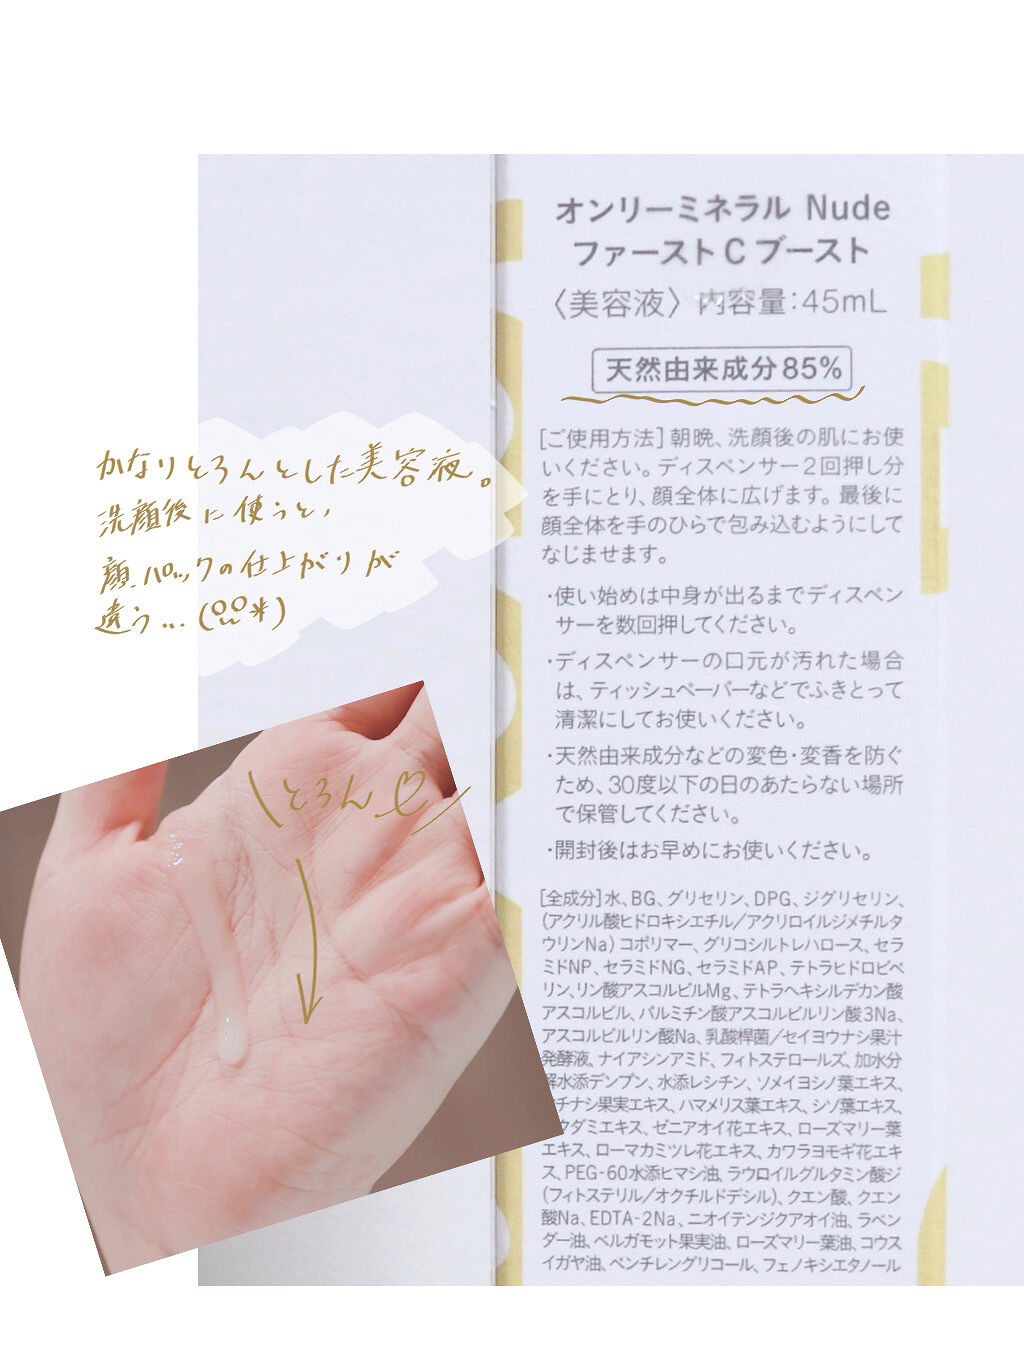 オンリーミネラル Nude
ファーストCブースト
〈美容液〉内容量:45mL
天然由来成分85%
[ご使用方法]朝晩、洗顔後の肌にお使
いください。ディスペンサー2回押し分
を手にとり、顔全体に広げます。最後に
顔全体を手のひらで包み込むようにして
なじませます。
・使い始めは中身が出るまでディスペン
サーを数回押してください。
・ディスペンサーの口元が汚れた場合
は、ティッシュペーパーなどでふきとって
清潔にしてお使いください。
・天然由来成分などの変色・変香を防ぐ
ため、30度以下の日のあたらない場所
で保管してください。
・開封後はお早めにお使いください。
[全成分]水、BG、グリセリン、DPG、ジグリセリン、
(アクリル酸ヒドロキシエチル/アクリロイルジメチルタ
ウリンNa)コポリマー、グリコシルトレハロース、セラ
ミドNP、セラミドNG、セラミドAP、テトラヒドロピペ
リン、リン酸アスコルビルMg、テトラヘキシルデカン酸
アスコルビル、パルミチン酸アスコルビルリン酸3Na、
アスコルビルリン酸Na、乳酸桿菌/セイヨウナシ果汁
発酵液、ナイアシンアミド、フィトステロールズ、加水分
解水添デンプン、水添レシチン、ソメイヨシノ葉エキス、
チナシ果実エキス、ハマメリス葉エキス、シソ葉エキス、
クダミエキス、ゼニアオイ花エキス、ローズマリー葉
エキス、ローマカミツレ花エキス、カワラヨモギ花エキ
ス、PEG-60水添ヒマシ油、ラウロイルグルタミン酸ジ
(フィトステリル/オクチルドデシル)、クエン酸、クエン
酸Na、EDTA-2Na、ニオイテンジクアオイ油、ラベン
ダー油、ベルガモット果実油、ローズマリー葉油、コウス
イガヤ油、ペンチレングリコール、フェノキシエタノール
かなりとろんとした美容液。
洗顔後に使うと、
顔パックの仕上がりが
違う...(                 *)
\とろん♡/